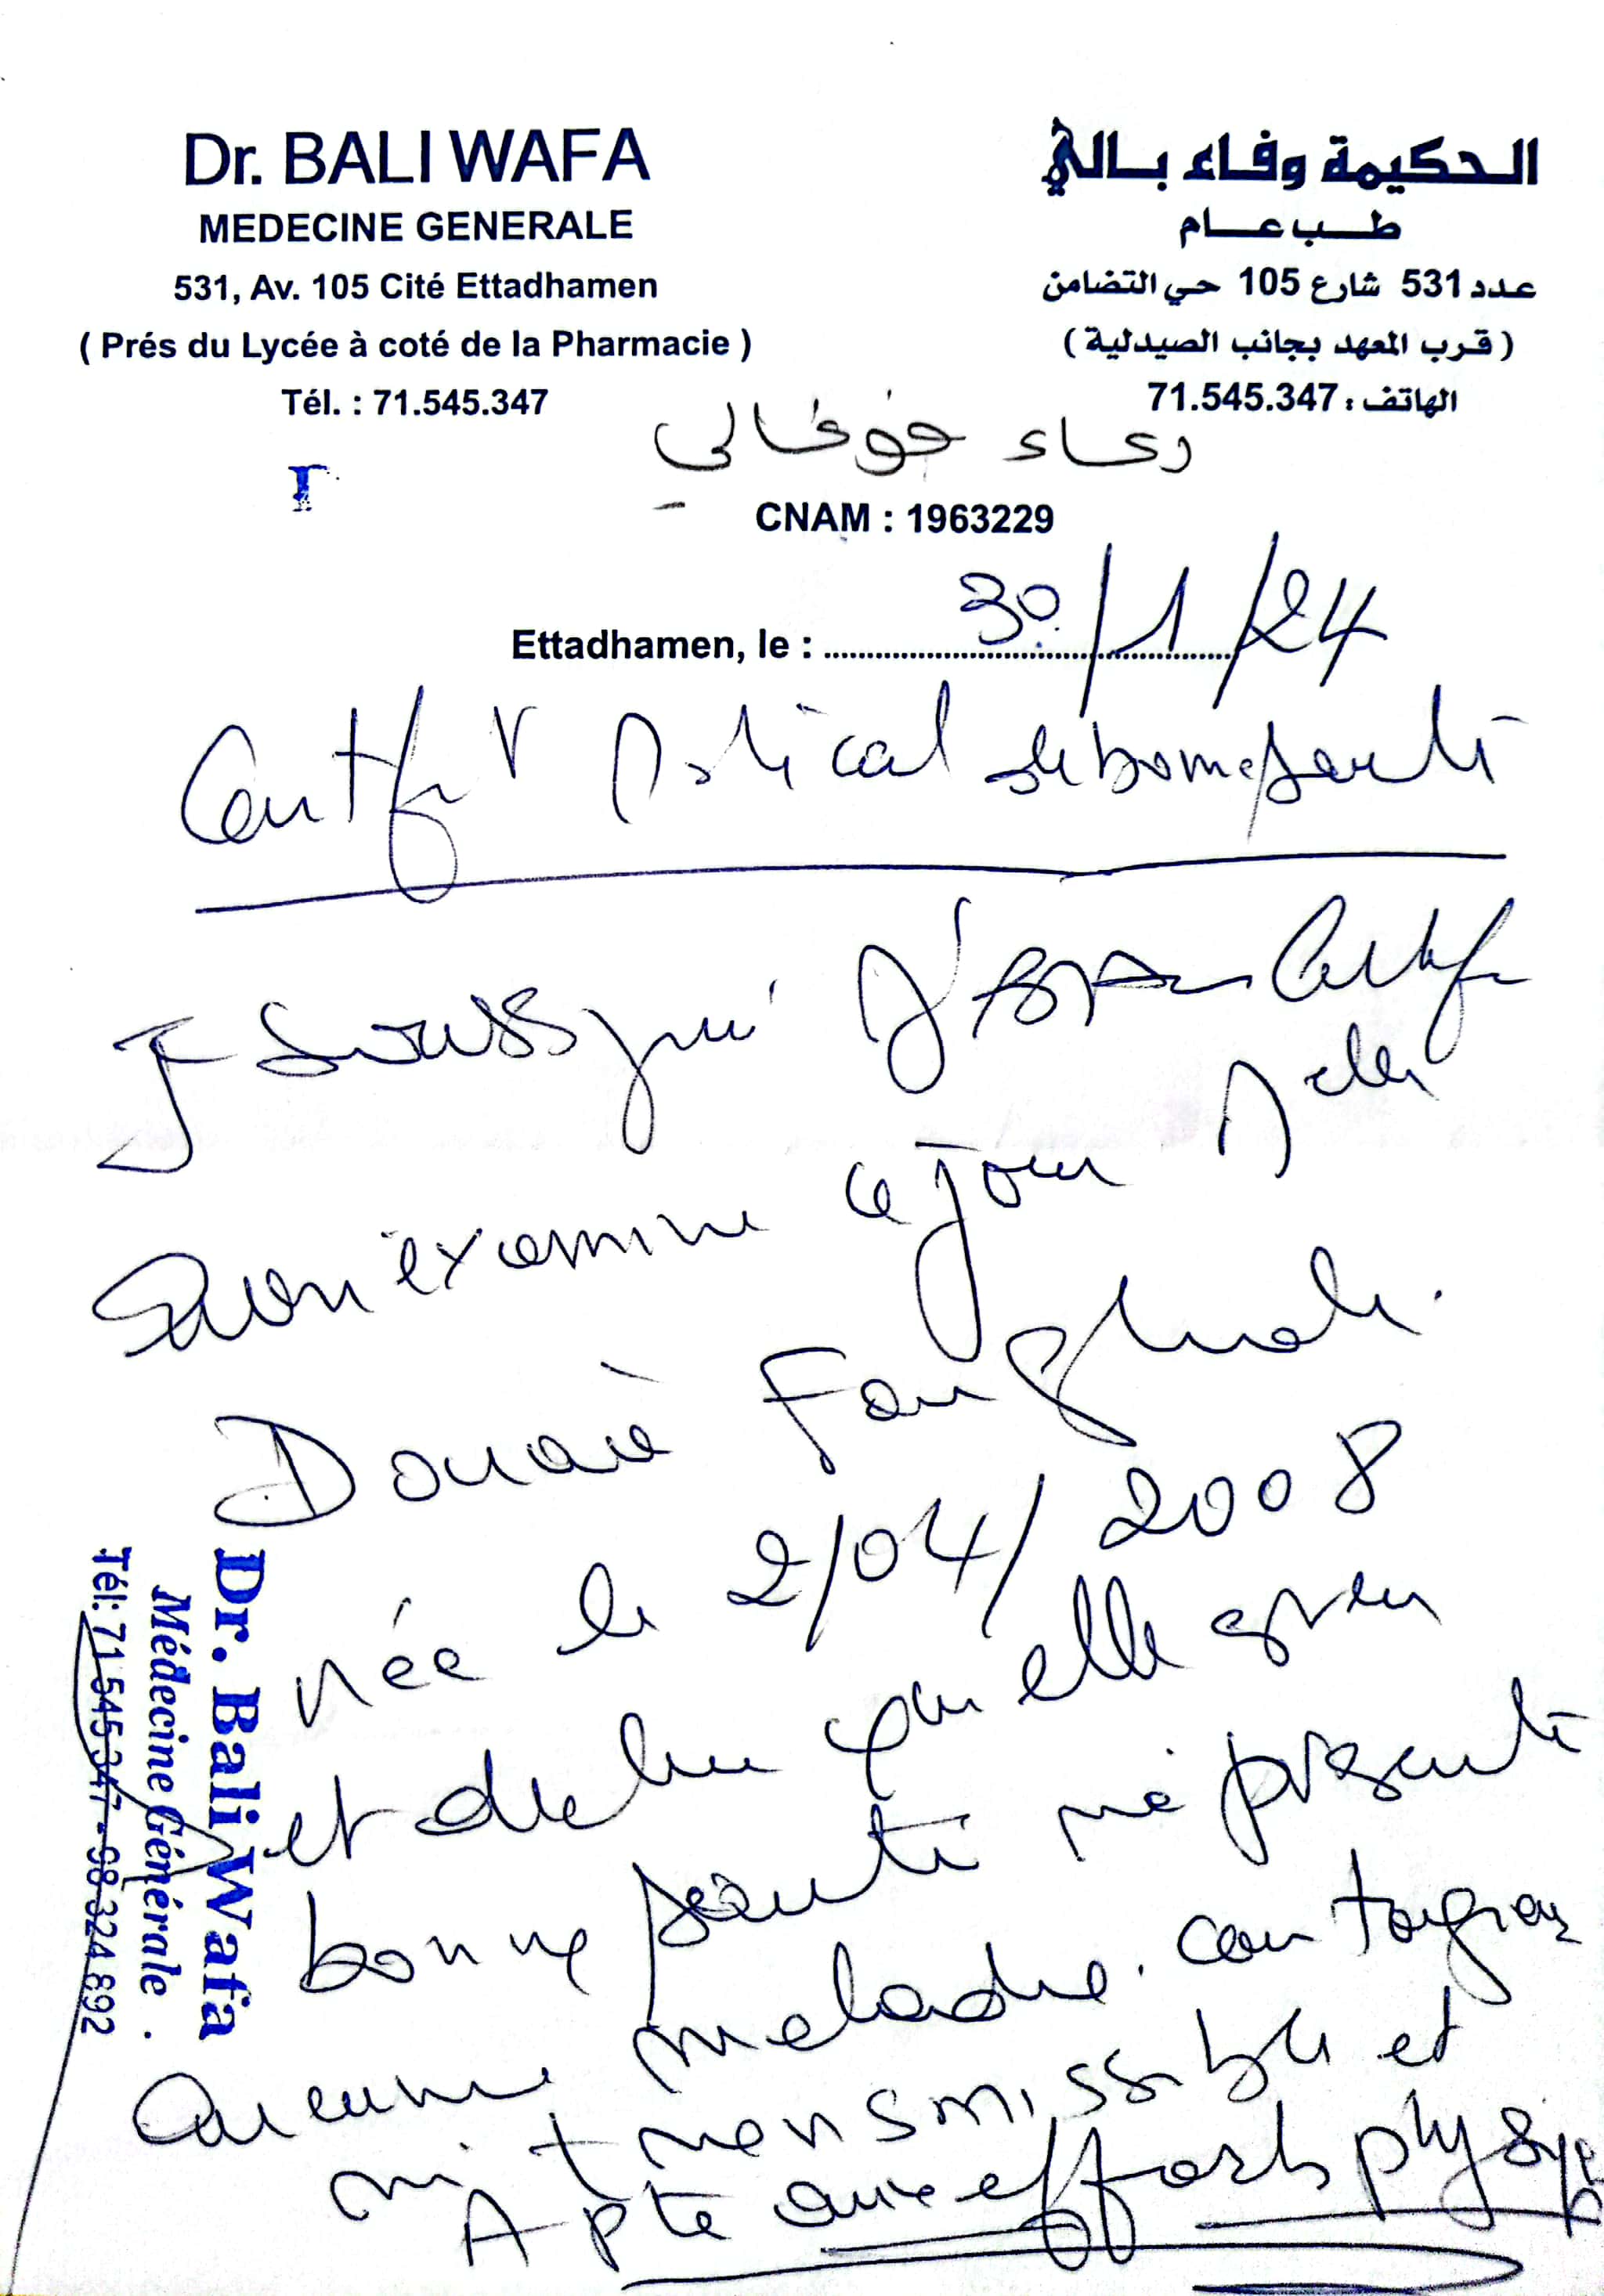 Dr. BALI WAFA
MEDECINE GENERALE
531, Av. 105 Cité Ettadhamen
( Prés du Lycée à coté de la Pharmacie )
Tél. : 71.545.347
الحكيمة وفاء بالي
طب عام
عدد 531 شارع 105 حي التضامن
( قرب المعهد بجانب الصيدلية )
الهاتف : 71.545.347
CNAM : 1963229
Ettadhamen, le : 30/1/24
Médical de bonne santé
Je soussigné
avoir examiné ce jour Melle
Douaà
née le 2/04/2008
et qu'elle
bonne santé présente
aucune maladie contagieuse
ni transmissible et
Apte aux efforts physiq
Dr. Bali Wafa
Médecine Générale
Tél: 71 545 347 - 98 324 892